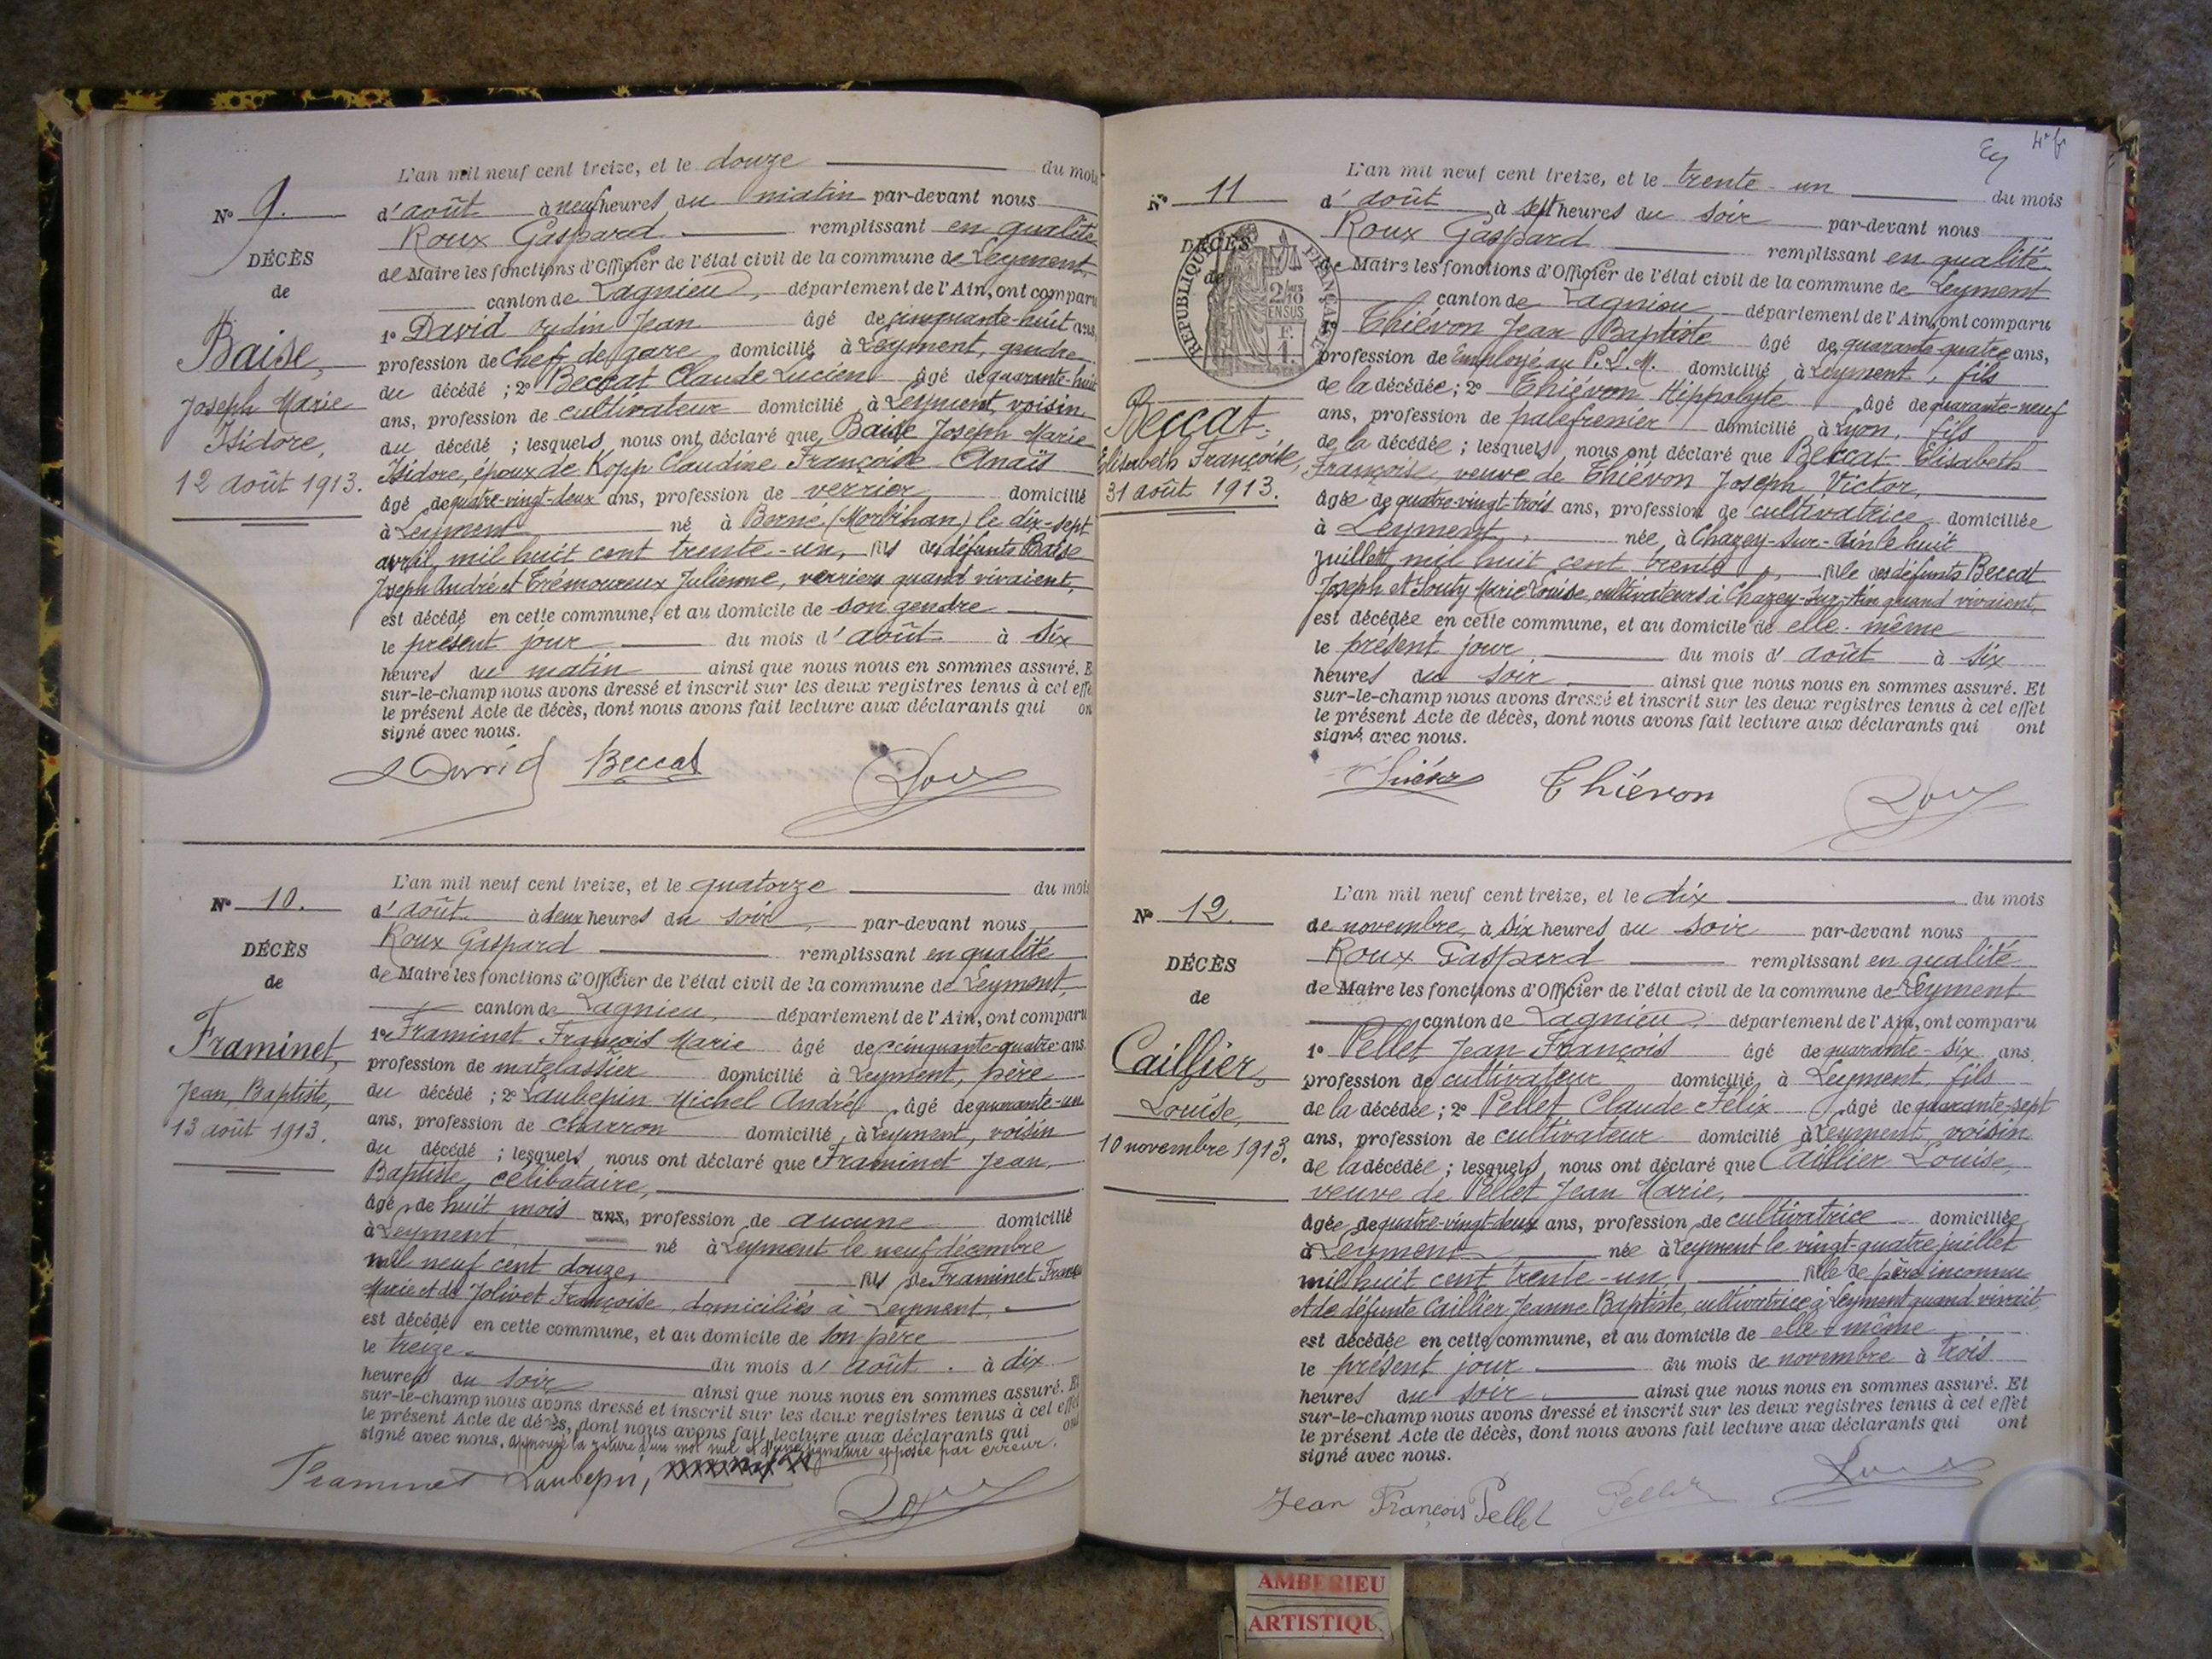 L'an mil neuf cent treize, et le douze du mois
N° 9.
d'août à neuf heures du matin par-devant nous
Roux Gaspard remplissant en qualité
DÉCÈS
de Maire les fonctions d'Officier de l'état civil de la commune de Leyment,
de
canton de Lagnieu, département de l'Ain, ont comparu
1° David Jean âgé de cinquante-huit ans,
Baise,
profession de Chef de gare domicilié à Leyment, gendre
du décédé ; 2° Beccat Claude Lucien âgé de quarante-huit
Joseph Marie
ans, profession de cultivateur domicilié à Leyment, voisin
Isidore,
du décédé ; lesquels nous ont déclaré que Baise Joseph Marie
12 août 1913.
Isidore, époux de Kopp Claudine Françoise Anaïs
âgé de quatre-vingt-deux ans, profession de verrier, domicilié
à Leyment né à Berné (Morbihan) le dix-sept
avril, mil huit cent trente-un, fils des défunts Baise
Joseph André et Trémoureux Julienne, verriers quand vivaient,
est décédé en cette commune, et au domicile de son gendre
le présent jour du mois d'août à six
heures du matin ainsi que nous nous en sommes assuré. E
sur-le-champ nous avons dressé et inscrit sur les deux registres tenus à cet effe
le présent Acte de décès, dont nous avons fait lecture aux déclarants qui on
signé avec nous.
David Beccat Roux
L'an mil neuf cent treize, et le quatorze du mois
N° 10.
d'août à deux heures du soir, par-devant nous
Roux Gaspard remplissant en qualité
DÉCÈS
de Maire les fonctions d'Officier de l'état civil de la commune de Leyment,
de
canton de Lagnieu, département de l'Ain, ont comparu
Framinet,
1° Framinet François Marie âgé de cinquante-quatre ans
profession de matelassier domicilié à Leyment, père
Jean Baptiste,
du décédé ; 2° Laubepin Michel André, âgé de quarante-un
13 août 1913.
ans, profession de charron domicilié, à Leyment, voisin
du décédé ; lesquels nous ont déclaré que Framinet Jean
Baptiste, célibataire,
âgé de huit mois ans, profession de aucune domicilié
à Leyment né à Leyment le neuf décembre
mil neuf cent douze, fils de Framinet Franç
Marie et de Jolivet Françoise, domiciliés à Leyment,
est décédé en cette commune, et au domicile de son père
le treize du mois d'août à dix
heures du soir ainsi que nous nous en sommes assuré. Et
sur-le-champ nous avons dressé et inscrit sur les deux registres tenus à cet effet
le présent Acte de décès, dont nous avons fait lecture aux déclarants qui ont
signé avec nous. Approuvé la rature d'un mot nul et d'une signature apposée par erreur.
Framinet Laubepin, Roux
L'an mil neuf cent treize, et le trente-un du mois
N° 11
d'août à sept heures du soir par-devant nous
Roux Gaspard remplissant en qualité
DÉCÈS
de Maire les fonctions d'Officier de l'état civil de la commune de Leyment
de
canton de Lagnieu, département de l'Ain, ont comparu
RÉPUBLIQUE FRANÇAISE
1° Thiévon Jean Baptiste âgé de quarante-quatre ans,
profession de Employé au P. L. M. domicilié à Leyment, fils
de la décédée ; 2° Thiévon Hippolyte âgé de quarante-neuf
Beccat
ans, profession de palefrenier domicilié à Lyon, fils
Elisabeth Françoise,
de la décédée ; lesquels nous ont déclaré que Beccat Elisabeth
31 août 1913.
Françoise, veuve de Thiévon Joseph Victor,
âgée de quatre-vingt-trois ans, profession de cultivatrice domiciliée
à Leyment, née, à Chazey-sur-Ain le huit
juillet, mil huit cent trente, fille des défunts Beccat
Joseph et Marie Louise, cultivateurs à Chazey-sur-Ain quand vivaient,
est décédée en cette commune, et au domicile de elle-même
le présent jour du mois d'août à six
heures du soir ainsi que nous nous en sommes assuré. Et
sur-le-champ nous avons dressé et inscrit sur les deux registres tenus à cet effet
le présent Acte de décès, dont nous avons fait lecture aux déclarants qui ont
signé avec nous.
Thiévon Roux
L'an mil neuf cent treize, et le dix du mois
N° 12.
de novembre, à six heures du soir par-devant nous
Roux Gaspard remplissant en qualité
DÉCÈS
de Maire les fonctions d'Officier de l'état civil de la commune de Leyment
de
canton de Lagnieu, département de l'Ain, ont comparu
Caillier,
1° Pellet Jean François âgé de quarante-six ans
profession de cultivateur domicilié à Leyment, fils
Louise,
de la décédée ; 2° Pellet Claude Félix âgé de quarante-sept
10 novembre 1913.
ans, profession de cultivateur domicilié à Leyment voisin
de la décédée ; lesquels nous ont déclaré que Caillier Louise,
veuve de Pellet Jean Marie,
âgée de quatre-vingt-deux ans, profession de cultivatrice domiciliée
à Leyment née à Leyment le vingt-quatre juillet
mil huit cent trente-un, fille de père inconnu
et de défunte Caillier Jeanne Baptiste, cultivatrice à Leyment quand vivait,
est décédée en cette commune, et au domicile de elle-même
le présent jour du mois de novembre à trois
heures du soir ainsi que nous nous en sommes assuré. Et
sur-le-champ nous avons dressé et inscrit sur les deux registres tenus à cet effet
le présent Acte de décès, dont nous avons fait lecture aux déclarants qui ont
signé avec nous.
Jean François Pellet Pellet Roux
AMBERIEU
ARTISTIQU